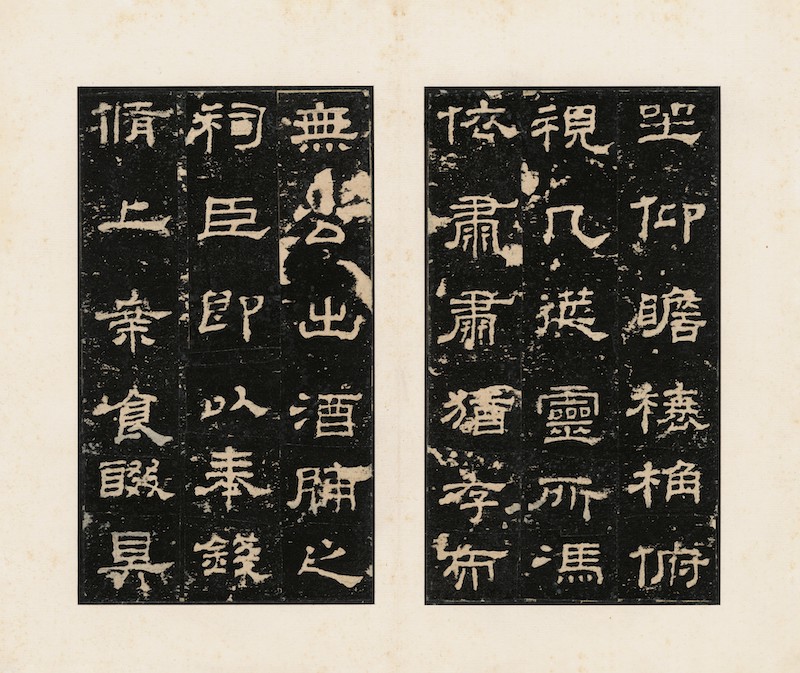 坐仰瞻榱桷俯
視几筵靈所馮
依肅肅猶存而
無公出酒脯之
祠臣即以奉錢
脩上案食醊具